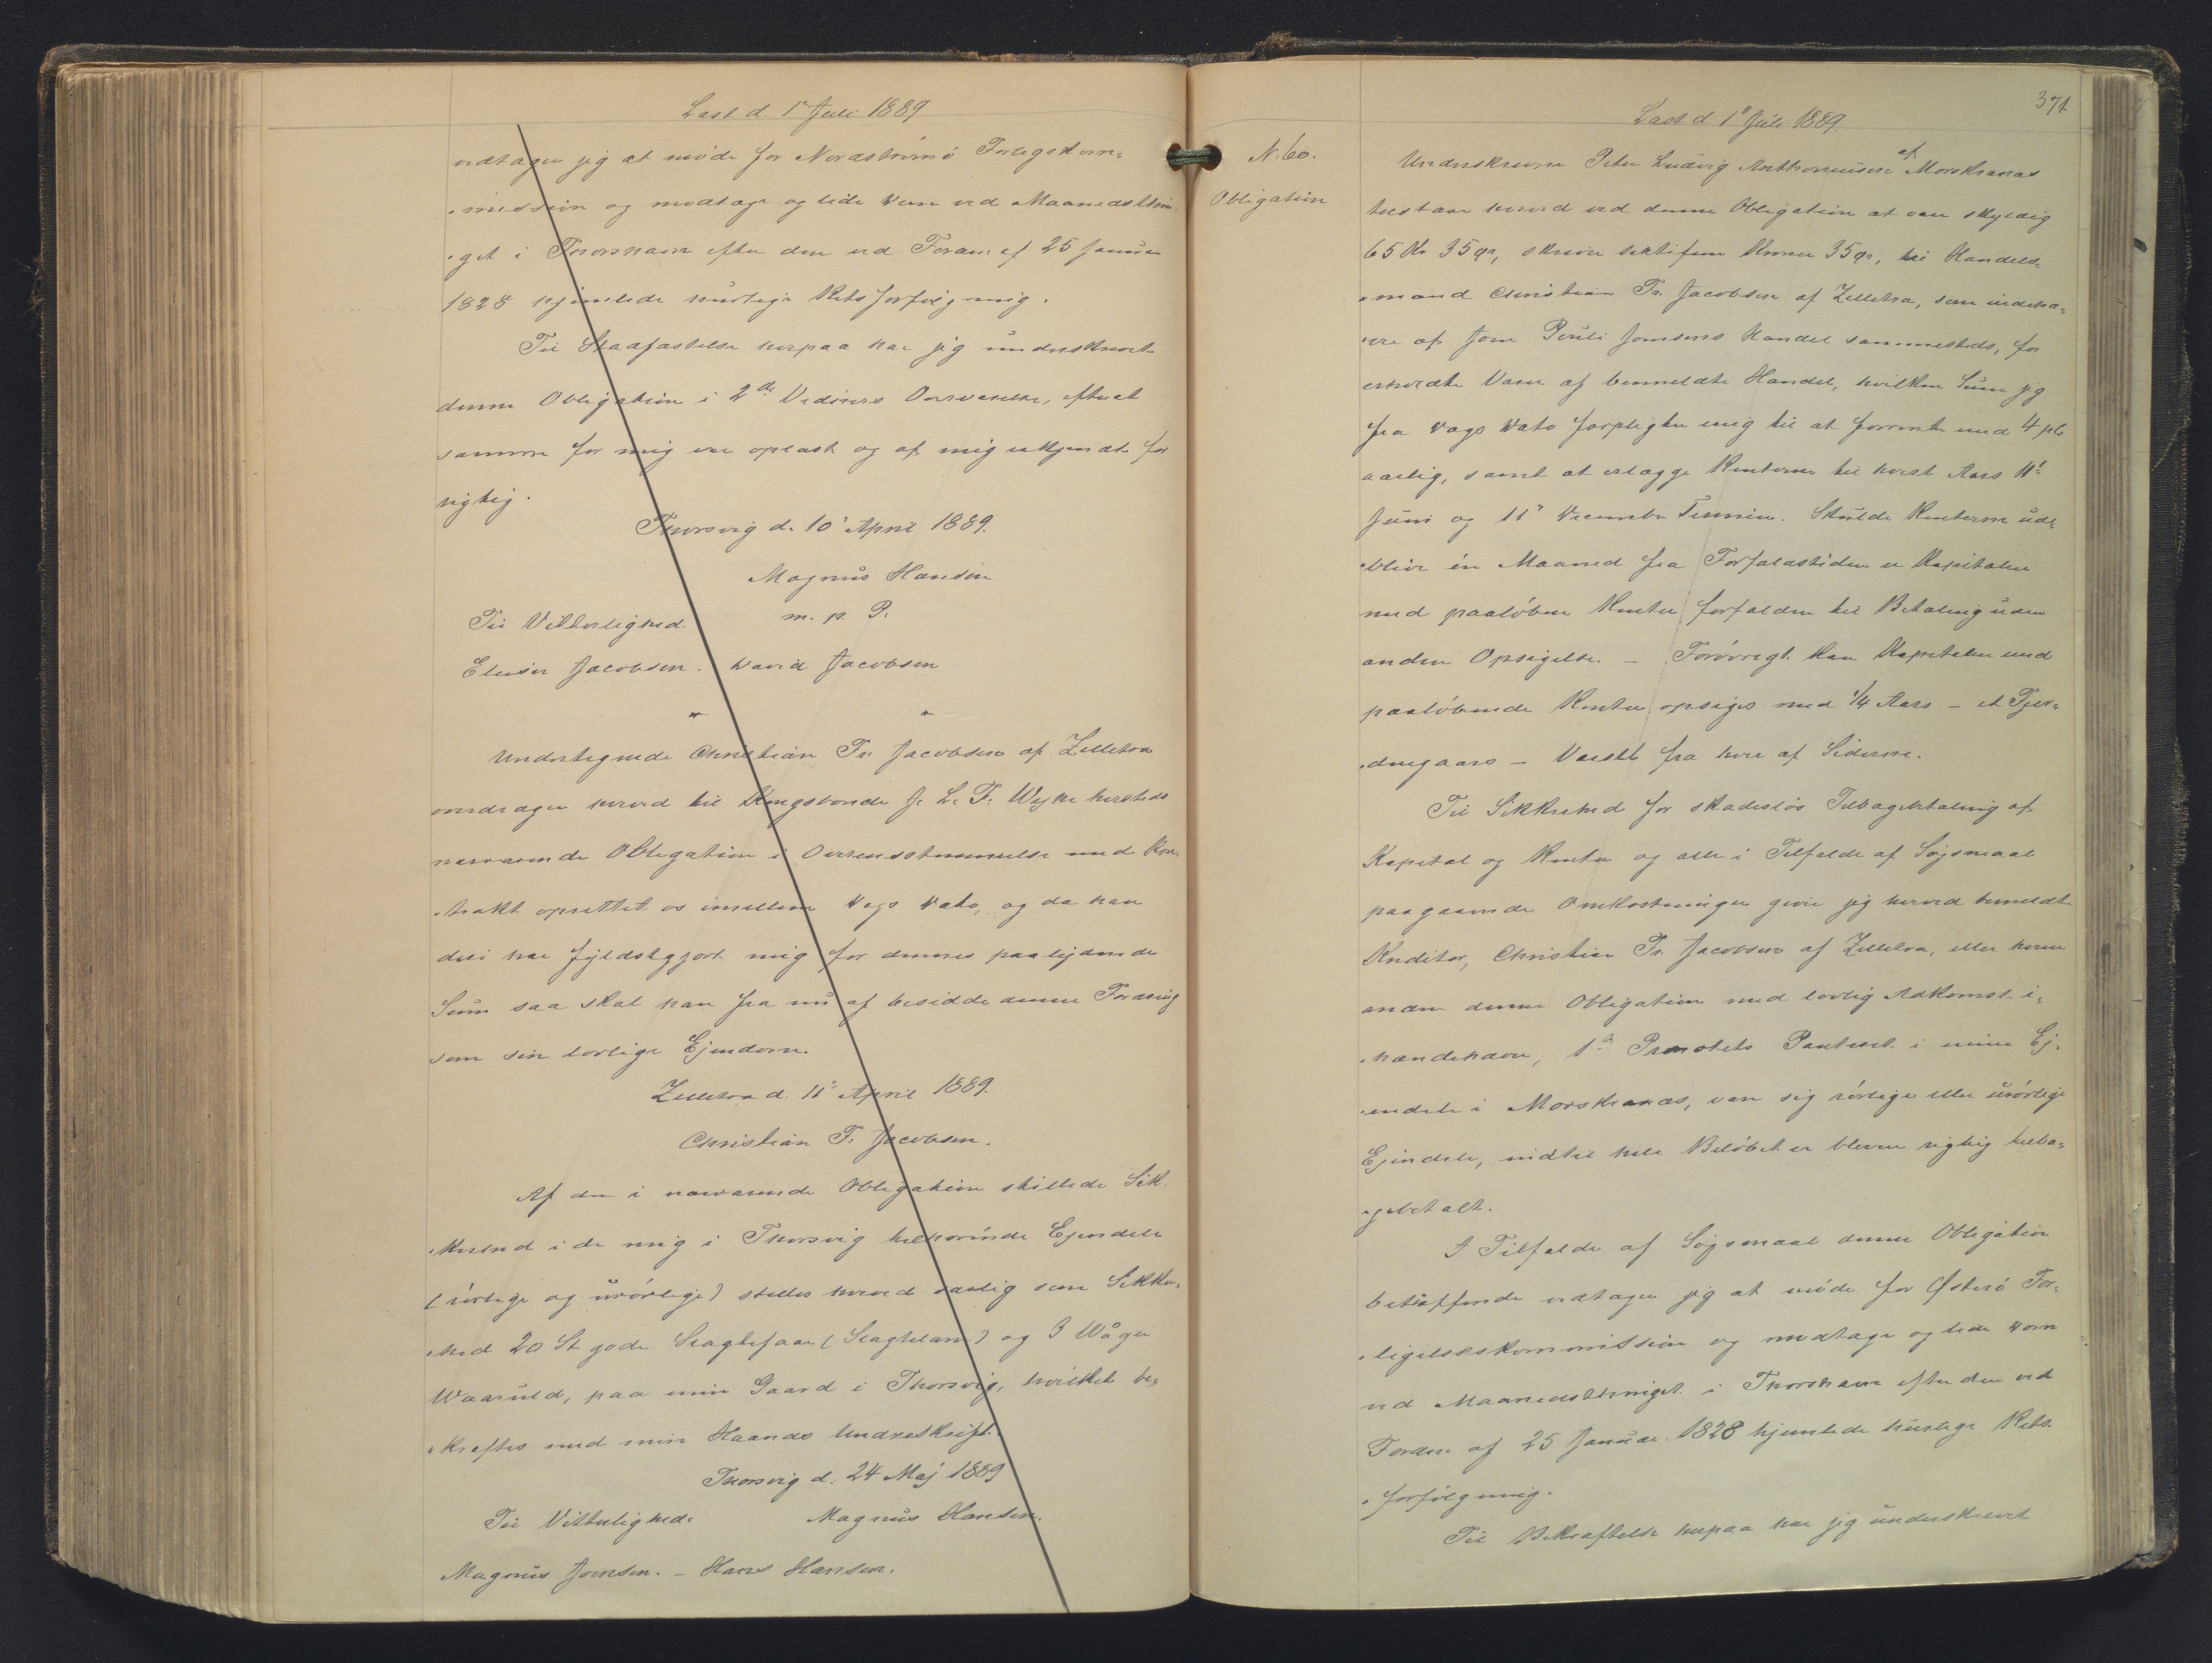 Læst d. 1' Juli 1889
vedtager jeg at møde for Nordstrømø Forligskom-
mission og modtage og lide Dom ved Maanedsthin-
get i Thorshavn efter den ved Foranr. af 25 Januar
1828 hjemlede hurtige Retsforfølgning.
Til Stadfæstelse herpaa har jeg underskrevet
denne Obligation i 2de Vidners Overværelse, efterat
samme for mig var oplæst og af mig erkjendt for
rigtig.
Thorsvig d. 10' April 1889.
Magnus Hansen
Til Vitterlighed. m. p. P.
Elieser Jacobsen. David Jacobsen
Undertegnede Christian Fr. Jacobsen af Zelletræ
overdrager herved til Kongsbonde J. L. F. Weyhe hersteds
nærværende Obligation i Overensstemmelse med Kon-
trakt oprettet os imellem Dags Dato, og da han
deri har fyldestgjort mig for dennes paalydende
Sum saa skal han fra nu af besidde denne Fordring
som sin lovlige Ejendom.
Zelletræ d. 11' April 1889.
Christian F. Jacobsen.
Af den i nærværende Obligation stillede Sik-
kerhed i de mig i Thorsvig tilhørende Ejendele
(rørlige og urørlige) stilles herved særlig som Sikker-
hed 20 St gode Slagtefaar (Slagtelam) og 3 Våger
Waaruld, paa min Gaard i Thorsvig, hvilket be-
kræftes med min Haands Underskrift.
Thorsvig d. 24 Maj 1889
Til Vitterlighed: Magnus Hansen.
Magnus Joensen. - Hans Hansen.
371.
Læst d 1' Juli 1889.
N. 60.
Obligation
Underskrevne Peter Ludvig Anthoniussen af Morskranæs
tilstaar herved ved denne Obligation at være skyldig
65 Kr 35 Ør, skriver sextifem Kroner 35 Ør, til Handels-
mand Christian Fr. Jacobsen af Zelletræ, som indeha-
ver af Joen Pouli Joensens Handel sammesteds, for
erhvervede Varer af bemeldte Handel, hvilken Sum jeg
fra Dags Dato forpligter mig til at forrente med 4 pCt
aarlig, samt at erlægge Renterne til hvert Aars 11'
Juni og 11' December Termin. Skulde Renterne ude-
blive én Maaned fra Forfaldstiden er Kapitalen
med paaløbne Renter forfalden til Betaling uden
anden Opsigelse. - Forøvrigt kan Kapitalen med
paaløbende Renter opsiges med 1/4 Aars - et Fjer-
dingaars - Varsel fra hver af Siderne.
Til Sikkerhed for skadesløs Tilbagebetaling af
Kapital og Renter og alle i Tilfælde af Søgsmaal
paagaaende Omkostninger giver jeg herved bemeldte
Kreditor, Christian Fr. Jacobsen af Zelletræ, eller hvem
anden denne Obligation med lovlig Adkomst i-
hændehaver, 1ste Prioritets Panteret i mine Ej-
endele i Morskranæs, være sig rørlige eller urørlige
Ejendele, indtil hele Beløbet er bleven rigtig tilba-
gebetalt.
I Tilfælde af Søgsmaal denne Obligation
betræffende vedtager jeg at møde for Østerø For-
ligelseskommission og modtage og lide Dom
ved Maanedsthinget i Thorshavn efter den ved
Foranr af 25 Januar 1828 hjemlede hurtige Rets-
forfølgning.
Til Bekræftelse herpaa har jeg underskrevet